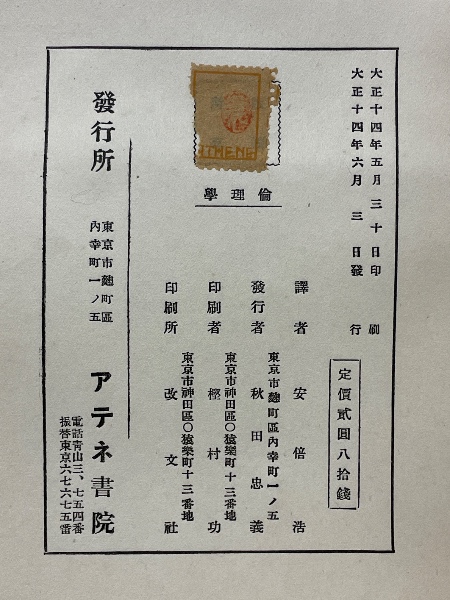 大正十四年五月三十日印刷
大正十四年六月三日發行
定價貳圓八拾錢
倫理學
THENE
譯者 安倍浩
東京市麴町區內幸町一ノ五
發行者 秋田忠義
東京市神田區〇猿樂町十三番地
印刷者 樫村功
東京市神田區〇猿樂町十三番地
印刷所 改文社
發行所
東京市麴町區
內幸町一ノ五
アテネ書院
電話靑山三、七五四番
振替東京六七六七五番